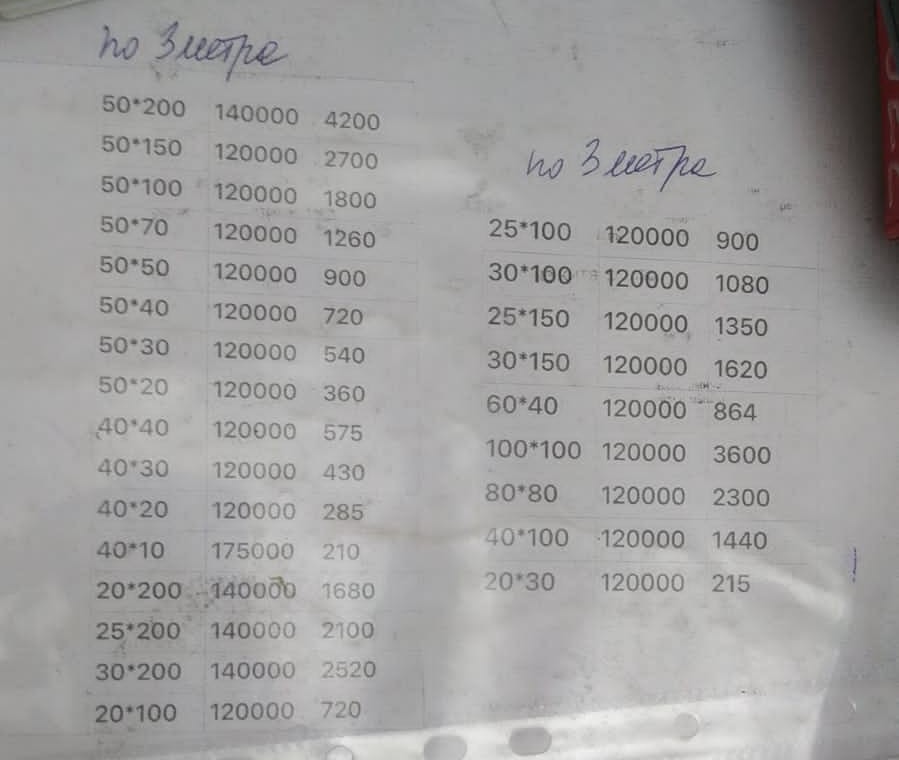 по 3 метра
50*200 140000 4200
50*150 120000 2700
50*100 120000 1800
50*70 120000 1260
50*50 120000 900
50*40 120000 720
50*30 120000 540
50*20 120000 360
40*40 120000 575
40*30 120000 430
40*20 120000 285
40*10 175000 210
20*200 140000 1680
25*200 140000 2100
30*200 140000 2520
20*100 120000 720
по 3 метра
25*100 120000 900
30*100 120000 1080
25*150 120000 1350
30*150 120000 1620
60*40 120000 864
100*100 120000 3600
80*80 120000 2300
40*100 120000 1440
20*30 120000 215